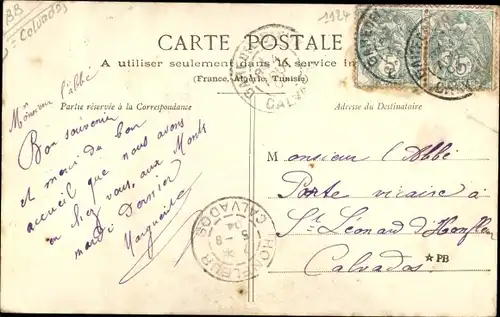 BB
= Calvados
1124
CARTE POSTALE
A utiliser seulement dans le service in
(France, Algérie, Tunisie)
Partie réservée à la Correspondance
Adresse du Destinataire
Monsieur l'abbé
Bon souvenir
et merci du bon
accueil que nous avons
eu chez vous, aux Monts
mardi dernier
Marguerite
Monsieur l'Abbé
Porte vicaire à
St Léonard d'Honfleur
Calvados
★ PB
HONFLEUR
CALVADOS
5
5